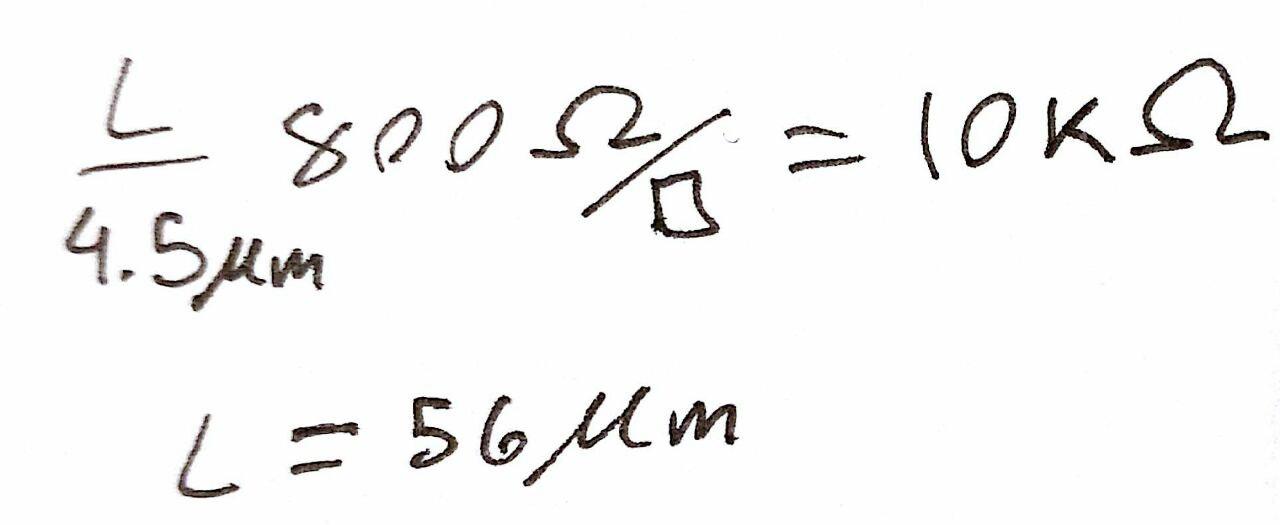 L/4.5μm 800Ω/□ = 10KΩ
L = 56μm